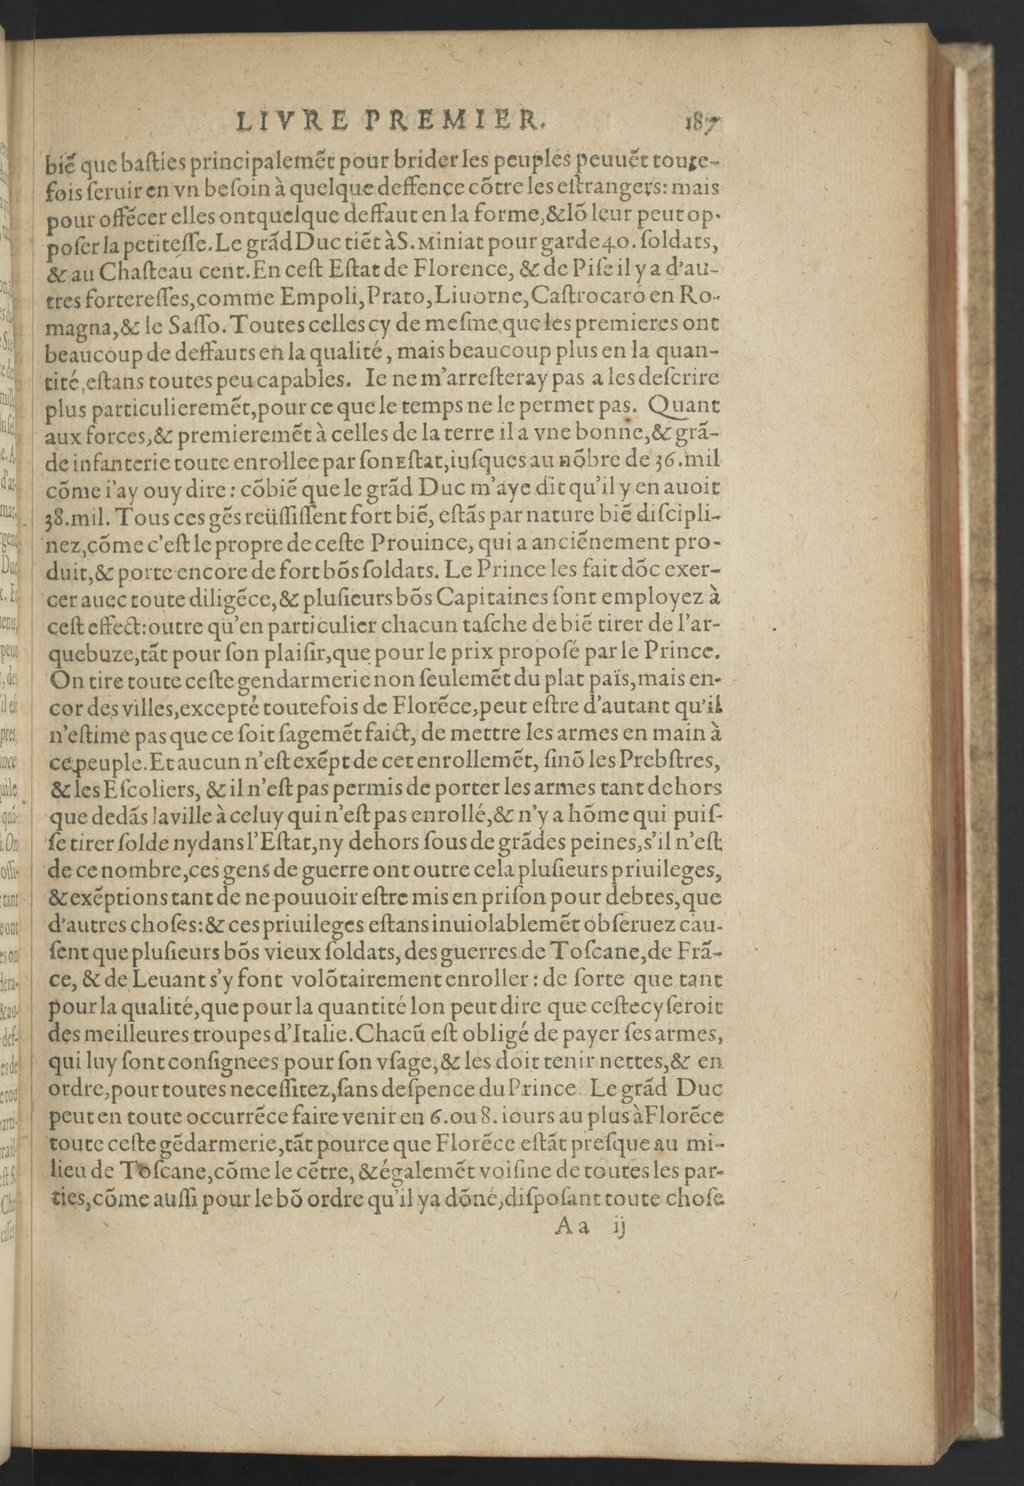 LIVRE PREMIER. 187
biẽ que baſties principalemẽt pour brider les peuples peuuẽt toute-
fois ſeruir en vn beſoin à quelque deffence cõtre les eſtrangers: mais
pour offẽcer elles ont quelque deffaut en la forme, & lõ leur peut op-
poſer la petiteſſe. Le grãd Duc tiẽt à S. Miniat pour garde 40. ſoldats,
& au Chaſteau cent. En ceſt Eſtat de Florence, & de Piſe il y a d'au-
tres fortereſſes, comme Empoli, Prato, Liuorne, Caſtrocaro en Ro-
magna, & le Saſſo. Toutes celles cy de meſme que les premieres ont
beaucoup de deffauts en la qualité, mais beaucoup plus en la quan-
tité, eſtans toutes peu capables. Ie ne m'arreſteray pas a les deſcrire
plus particulieremẽt, pour ce que le temps ne le permet pas. Quant
aux forces, & premieremẽt à celles de la terre il a vne bonne, & grã-
de infanterie toute enrollee par ſon Eſtat, iuſques au nõbre de 36. mil
cõme i'ay ouy dire: cõbiẽ que le grãd Duc m'aye dit qu'il y en auoit
38. mil. Tous ces gẽs reüſſiſſent fort biẽ, eſtãs par nature biẽ diſcipli-
nez, cõme c'eſt le propre de ceſte Prouince, qui a anciẽnement pro-
duit, & porte encore de fort bõs ſoldats. Le Prince les fait dõc exer-
cer auec toute diligẽce, & pluſieurs bõs Capitaines ſont employez à
ceſt effect: outre qu'en particulier chacun taſche de biẽ tirer de l'ar-
quebuze, tãt pour ſon plaiſir, que pour le prix propoſé par le Prince.
On tire toute ceſte gendarmerie non ſeulemẽt du plat païs, mais en-
cor des villes, excepté toutefois de Florẽce, peut eſtre d'autant qu'il
n'eſtime pas que ce ſoit ſagemẽt faict, de mettre les armes en main à
ce peuple. Et aucun n'eſt exẽpt de cet enrollemẽt, ſinõ les Prebſtres,
& les Eſcoliers, & il n'eſt pas permis de porter les armes tant dehors
que dedãs la ville à celuy qui n'eſt pas enrollé, & n'y a hõme qui puiſ-
ſe tirer ſolde ny dans l'Eſtat, ny dehors ſous de grãdes peines, s'il n'eſt
de ce nombre, ces gens de guerre ont outre cela pluſieurs priuileges,
& exẽptions tant de ne pouuoir eſtre mis en priſon pour debtes, que
d'autres choſes: & ces priuileges eſtans inuiolablemẽt obſeruez cau-
ſent que pluſieurs bõs vieux ſoldats, des guerres de Toſcane, de Frã-
ce, & de Leuant s'y font volõtairement enroller: de ſorte que tant
pour la qualité, que pour la quantité lon peut dire que ceſte cy ſeroit
des meilleures troupes d'Italie. Chacũ eſt obligé de payer ſes armes,
qui luy ſont conſignees pour ſon vſage, & les doit tenir nettes, & en
ordre, pour toutes neceſſitez, ſans deſpence du Prince. Le grãd Duc
peut en toute occurrẽce faire venir en 6. ou 8. iours au plus à Florẽce
toute ceſte gẽdarmerie, tãt pource que Florẽce eſtãt preſque au mi-
lieu de Toſcane, cõme le cẽtre, & égalemẽt voiſine de toutes les par-
ties, cõme auſſi pour le bõ ordre qu'il y a dõné, diſpoſant toute choſe
Aa ij